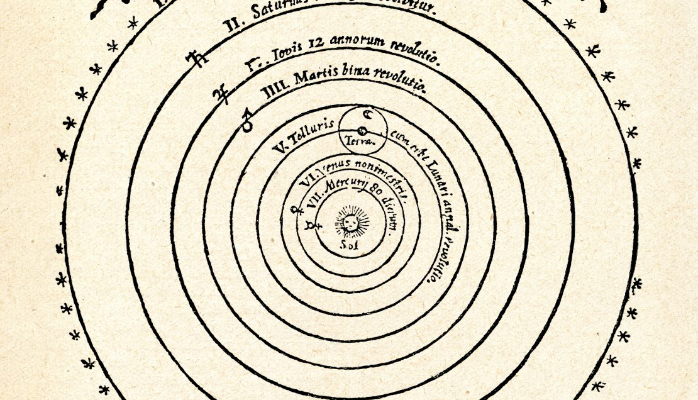 II. Saturnus revoluitur.
Iovis 12 annorum revolutio.
IIII. Martis bima revolutio.
V. Telluris
cum orbe Lunari revolutio.
Terra.
VI. Venus nonimestris.
VII. Mercurij 80 dierum.
Sol